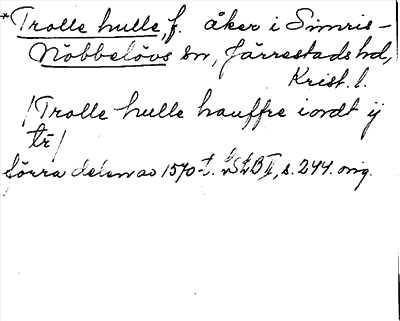 *Trolle hulle, f. åker i Simris-
Nöbbelövs sn, Järrestads hd,
Krist. l.
/Trolle hulle hauffre iordt ij
tr/
förra delen av 1570-t. LStB II, s. 244. orig.